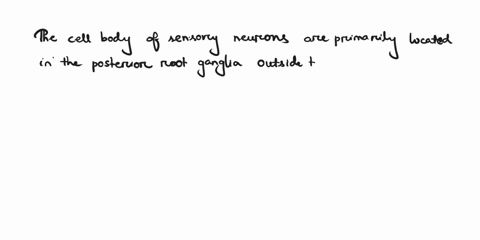 The cell body of sensory neurons are primarily located
in the posterior root ganglia outside t